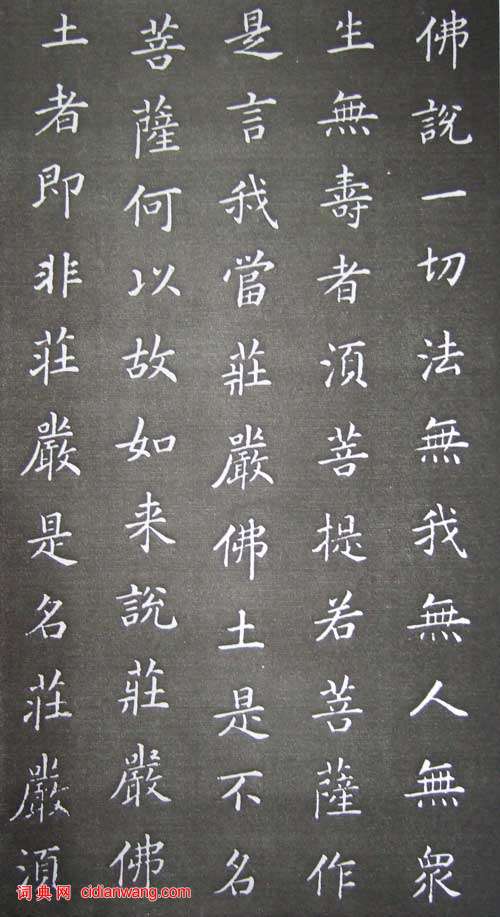 佛說一切法無我無人無眾
生無壽者須菩提若菩薩作
是言我當莊嚴佛土是不名
菩薩何以故如来說莊嚴佛
土者即非莊嚴是名莊嚴須
词典网 cidianwang.com